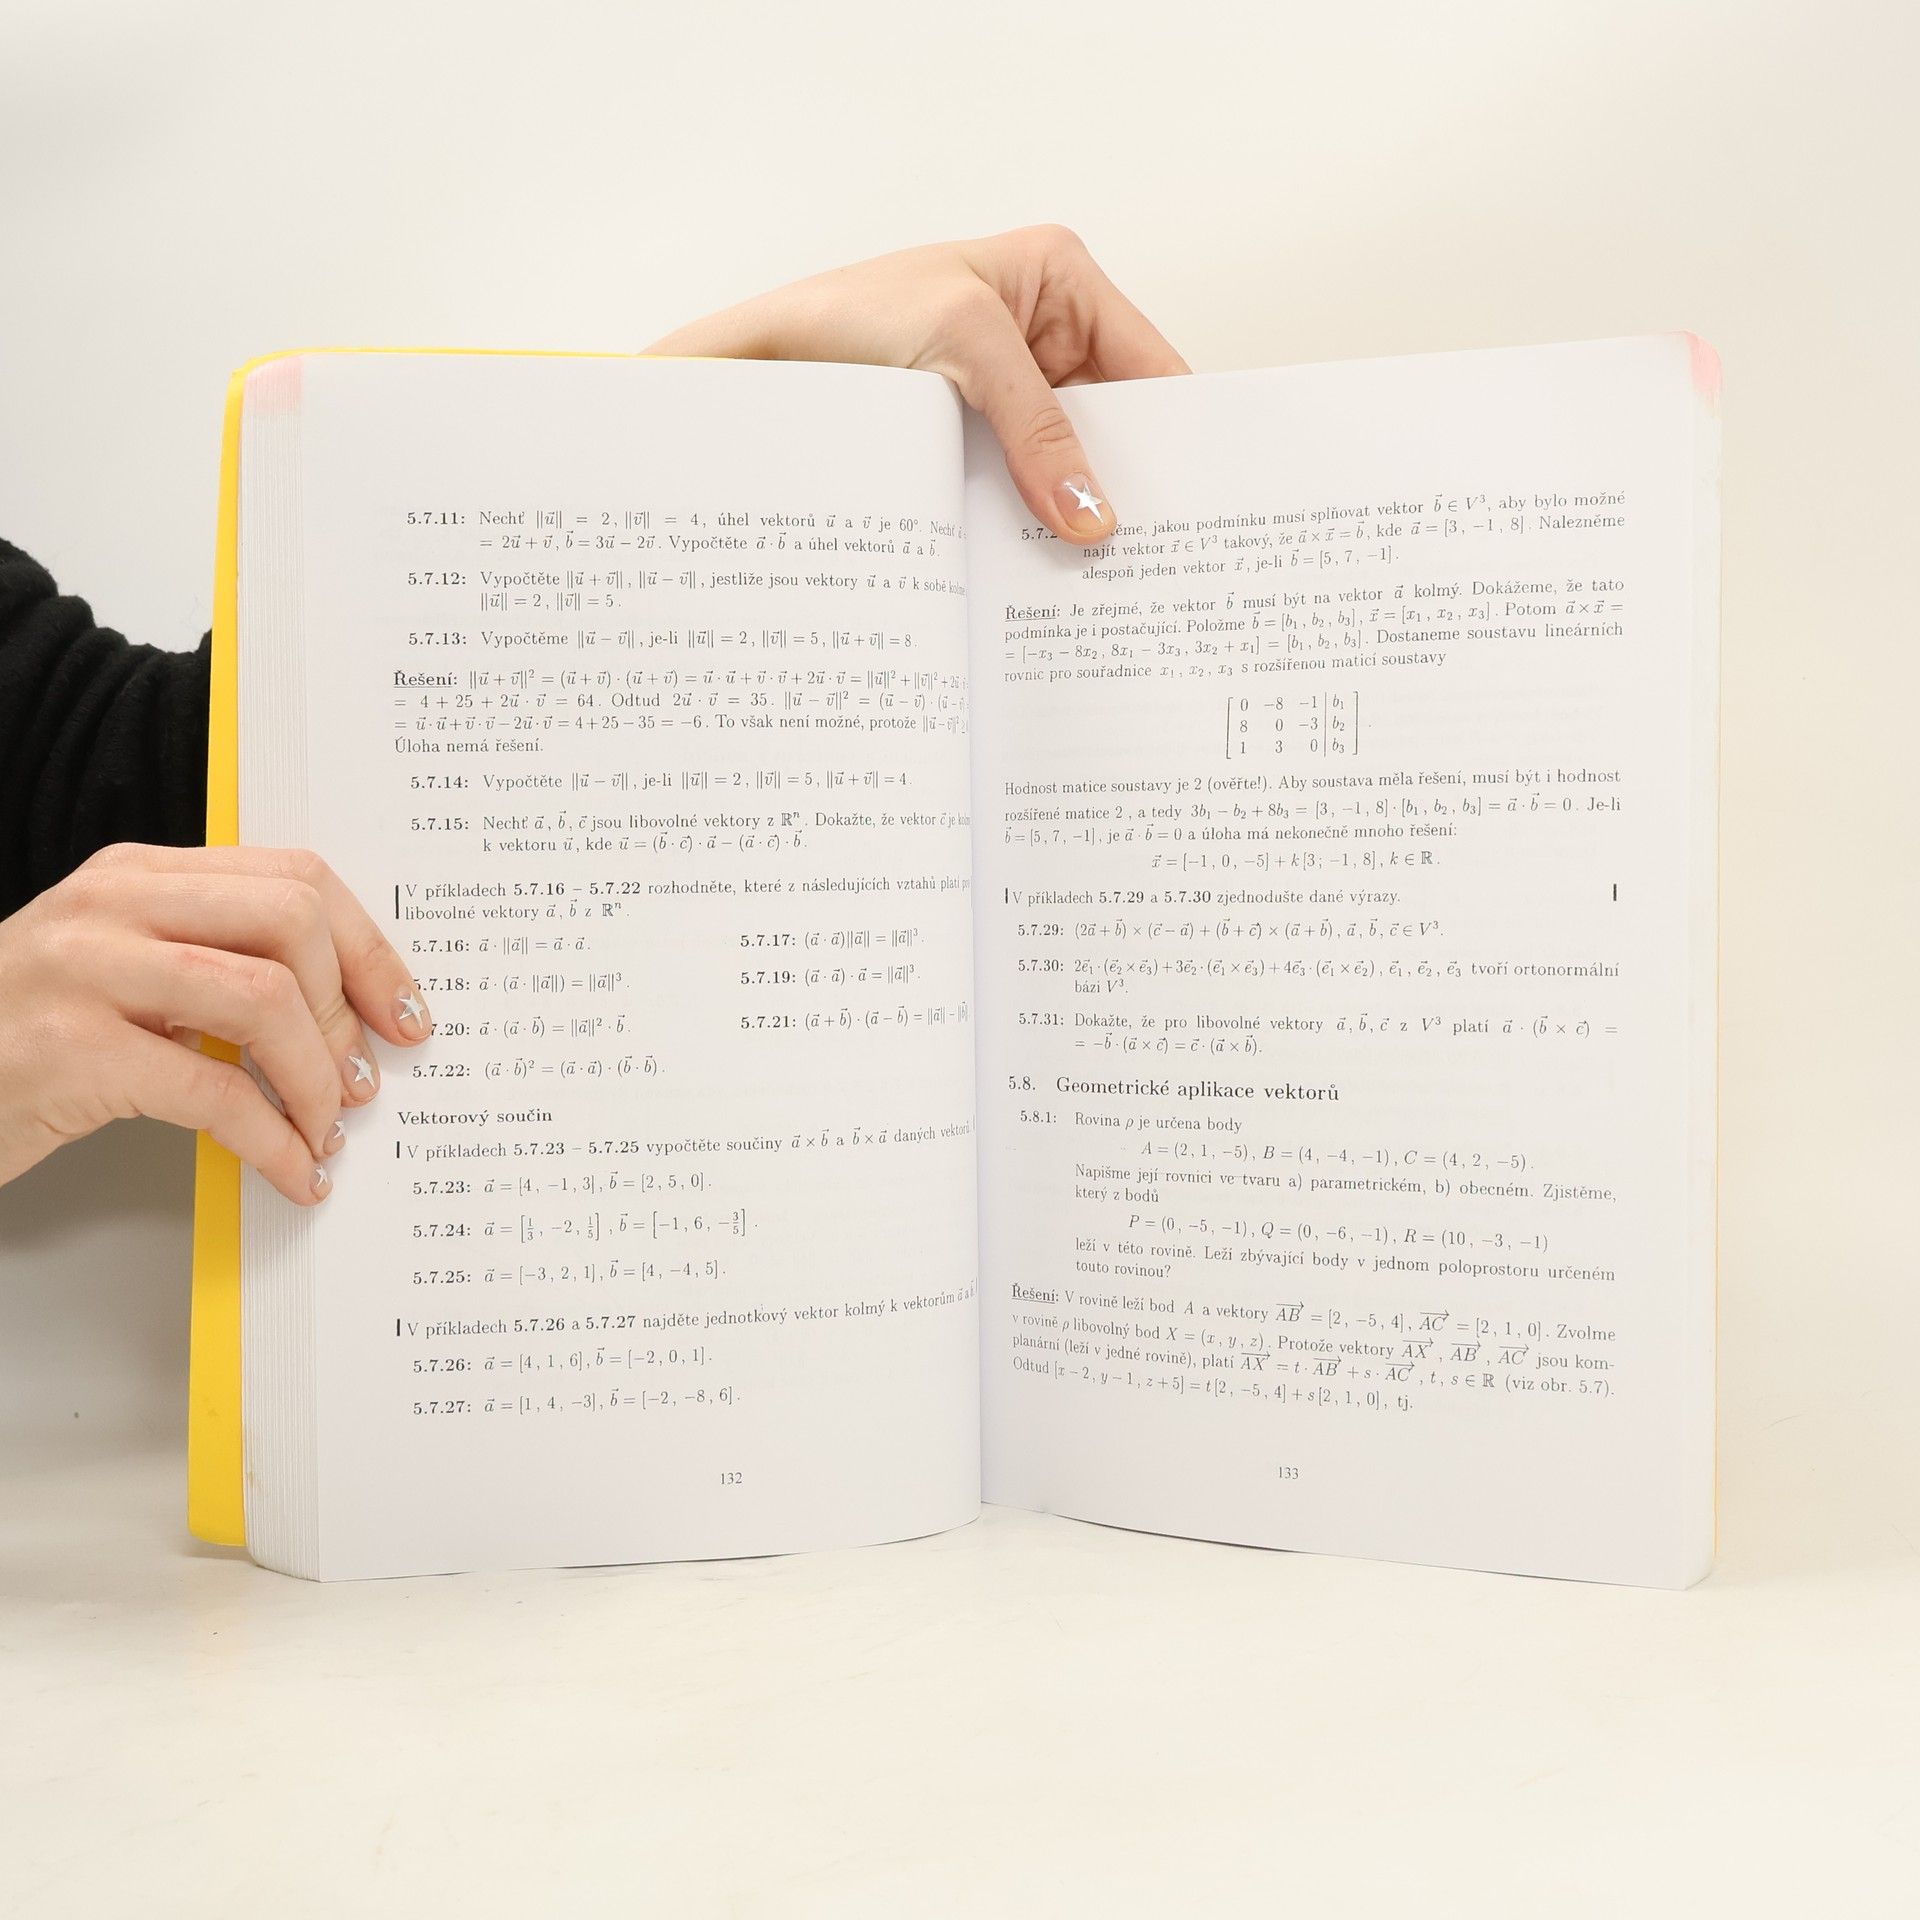 5.7.11: Nechť ||u⃗|| = 2, ||v⃗|| = 4, úhel vektorů u⃗ a v⃗ je 60°. Nechť
= 2u⃗ + v⃗, b⃗ = 3u⃗ − 2v⃗. Vypočtěte a⃗ · b⃗ a úhel vektorů a⃗ a b⃗.
5.7.12: Vypočtěte ||u⃗ + v⃗||, ||u⃗ − v⃗||, jestliže jsou vektory u⃗ a v⃗ k sobě
||u⃗|| = 2, ||v⃗|| = 5.
5.7.13: Vypočtěme ||u⃗ − v⃗||, je-li ||u⃗|| = 2, ||v⃗|| = 5, ||u⃗ + v⃗|| = 8.
Řešení: ||u⃗ + v⃗||² = (u⃗ + v⃗) · (u⃗ + v⃗) = u⃗ · u⃗ + v⃗ · v⃗ + 2u⃗ · v⃗ = ||u⃗||² + ||v⃗||² + 2u⃗ ·
= 4 + 25 + 2u⃗ · v⃗ = 64. Odtud 2u⃗ · v⃗ = 35. ||u⃗ − v⃗||² = (u⃗ − v⃗) · (u⃗ −
= u⃗ · u⃗ + v⃗ · v⃗ − 2u⃗ · v⃗ = 4 + 25 − 35 = −6. To však není možné, protože ||u⃗ − v⃗||²
Úloha nemá řešení.
5.7.14: Vypočtěte ||u⃗ − v⃗||, je-li ||u⃗|| = 2, ||v⃗|| = 5, ||u⃗ + v⃗|| = 4.
5.7.15: Nechť a⃗, b⃗, c⃗ jsou libovolné vektory z ℝⁿ. Dokažte, že vektor c⃗ je
k vektoru u⃗, kde u⃗ = (b⃗ · c⃗) · a⃗ − (a⃗ · c⃗) · b⃗.
V příkladech 5.7.16 – 5.7.22 rozhodněte, které z následujících vztahů platí
libovolné vektory a⃗, b⃗ z ℝⁿ.
5.7.16: a⃗ · ||a⃗|| = a⃗ · a⃗. 5.7.17: (a⃗ · a⃗)||a⃗|| = ||a⃗||³.
5.7.18: a⃗ · (a⃗ · ||a⃗||) = ||a⃗||³. 5.7.19: (a⃗ · a⃗) · a⃗ = ||a⃗||³.
7.20: a⃗ · (a⃗ · b⃗) = ||a⃗||² · b⃗. 5.7.21: (a⃗ + b⃗) · (a⃗ − b⃗) = ||a⃗|| − ||b⃗
5.7.22: (a⃗ · b⃗)² = (a⃗ · a⃗) · (b⃗ · b⃗).
Vektorový součin
V příkladech 5.7.23 – 5.7.25 vypočtěte součiny a⃗ × b⃗ a b⃗ × a⃗ daných vektorů.
5.7.23: a⃗ = [4, −1, 3], b⃗ = [2, 5, 0].
5.7.24: a⃗ = [1/3, −2, 1/5], b⃗ = [−1, 6, −3/5].
5.7.25: a⃗ = [−3, 2, 1], b⃗ = [4, −4, 5].
V příkladech 5.7.26 a 5.7.27 najděte jednotkový vektor kolmý k vektorům a⃗ a b⃗.
5.7.26: a⃗ = [4, 1, 6], b⃗ = [−2, 0, 1].
5.7.27: a⃗ = [1, 4, −3], b⃗ = [−2, −8, 6].
132
5.7.2 těme, jakou podmínku musí splňovat vektor b⃗ ∈ V³, aby bylo možné
najít vektor x⃗ ∈ V³ takový, že a⃗ × x⃗ = b⃗, kde a⃗ = [3, −1, 8]. Nalezněme
alespoň jeden vektor x⃗, je-li b⃗ = [5, 7, −1].
Řešení: Je zřejmé, že vektor b⃗ musí být na vektor a⃗ kolmý. Dokážeme, že tato
podmínka je i postačující. Položme b⃗ = [b₁, b₂, b₃], x⃗ = [x₁, x₂, x₃]. Potom a⃗ × x⃗ =
= [−x₃ − 8x₂, 8x₁ − 3x₃, 3x₂ + x₁] = [b₁, b₂, b₃]. Dostaneme soustavu lineárních
rovnic pro souřadnice x₁, x₂, x₃ s rozšířenou maticí soustavy
0 −8 −1 | b₁
8 0 −3 | b₂
1 3 0 | b₃
Hodnost matice soustavy je 2 (ověřte!). Aby soustava měla řešení, musí být i hodnost
rozšířené matice 2, a tedy 3b₁ − b₂ + 8b₃ = [3, −1, 8] · [b₁, b₂, b₃] = a⃗ · b⃗ = 0. Je-li
b⃗ = [5, 7, −1], je a⃗ · b⃗ = 0 a úloha má nekonečně mnoho řešení:
x⃗ = [−1, 0, −5] + k[3; −1, 8], k ∈ ℝ.
V příkladech 5.7.29 a 5.7.30 zjednodušte dané výrazy.
5.7.29: (2a⃗ + b⃗) × (c⃗ − a⃗) + (b⃗ + c⃗) × (a⃗ + b⃗), a⃗, b⃗, c⃗ ∈ V³.
5.7.30: 2e⃗₁ · (e⃗₂ × e⃗₃) + 3e⃗₂ · (e⃗₁ × e⃗₃) + 4e⃗₃ · (e⃗₁ × e⃗₂), e⃗₁, e⃗₂, e⃗₃ tvoří ortonormální
bázi V³.
5.7.31: Dokažte, že pro libovolné vektory a⃗, b⃗, c⃗ z V³ platí a⃗ · (b⃗ × c⃗) =
= −b⃗ · (a⃗ × c⃗) = c⃗ · (a⃗ × b⃗).
5.8. Geometrické aplikace vektorů
5.8.1: Rovina ρ je určena body
A = (2, 1, −5), B = (4, −4, −1), C = (4, 2, −5).
Napišme její rovnici ve tvaru a) parametrickém, b) obecném. Zjistěme,
který z bodů
P = (0, −5, −1), Q = (0, −6, −1), R = (10, −3, −1)
leží v této rovině. Leží zbývající body v jednom poloprostoru určeném
touto rovinou?
Řešení: V rovině leží bod A a vektory AB⃗ = [2, −5, 4], AC⃗ = [2, 1, 0]. Zvolme
v rovině ρ libovolný bod X = (x, y, z). Protože vektory AX⃗, AB⃗, AC⃗ jsou kom-
planární (leží v jedné rovině), platí AX⃗ = t · AB⃗ + s · AC⃗, t, s ∈ ℝ (viz obr. 5.7).
Odtud [x − 2, y − 1, z + 5] = t[2, −5, 4] + s[2, 1, 0], tj.
133